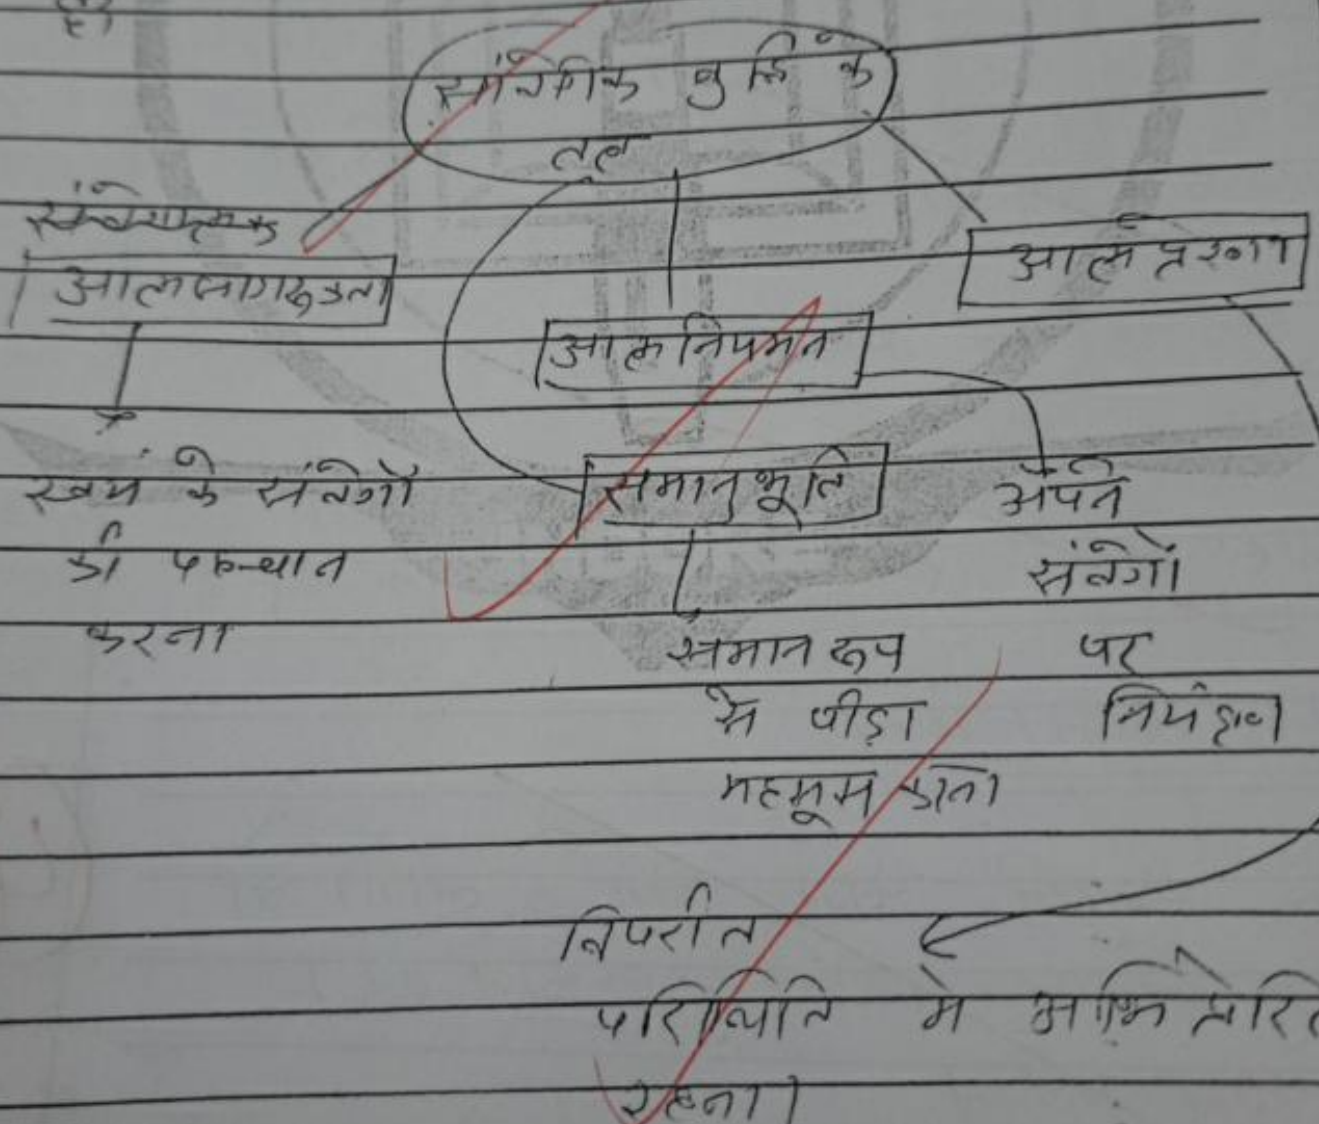 सांवेगिक बुद्धि के
तत्व
आत्मजागरूकता
आत्म प्रेरणा
आत्म नियमन
समानुभूति
स्वयं के संवेगों
की पहचान
करना
अपने
संवेगों
पर
नियंत्रण
समान रूप
से पीड़ा
महसूस करना
विपरीत
परिस्थिति मे अभिप्रेरित
रहना।